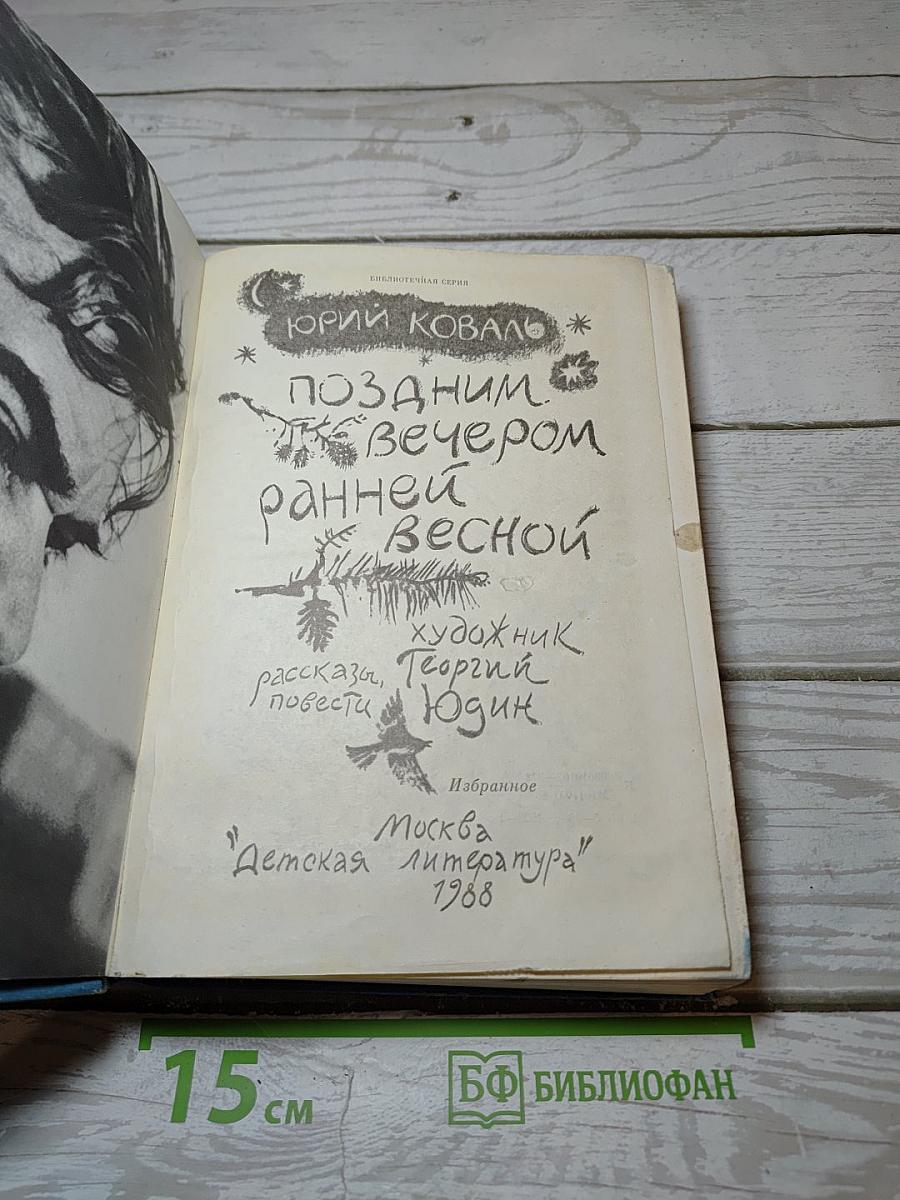 БИБЛИОТЕЧНАЯ СЕРИЯ
ЮРИЙ КОВАЛЬ
ПОЗДНИМ
ВЕЧЕРОМ
РАННЕЙ
ВЕСНОЙ
художник
Георгий
Юдин
рассказы,
повести
Избранное
Москва
"Детская литература"
1988
15 см
БФ БИБЛИОФАН